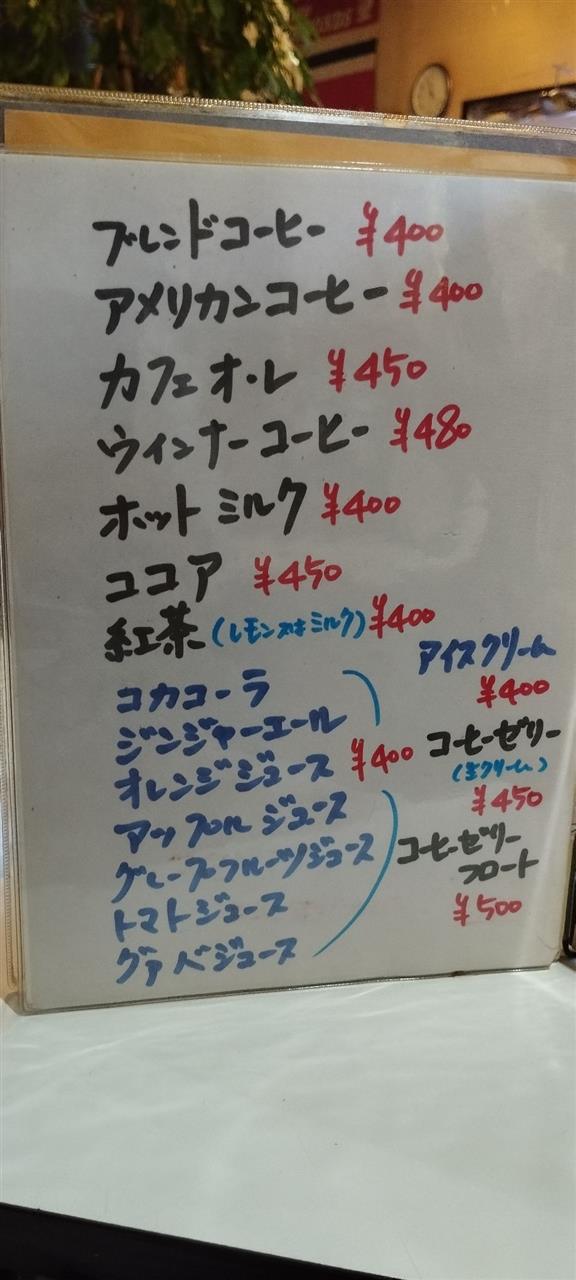 ブレンドコーヒー ¥400
アメリカンコーヒー ¥400
カフェオ・レ ¥450
ウィンナーコーヒー ¥480
ホットミルク ¥400
ココア ¥450
紅茶(レモン又はミルク) ¥400
コカコーラ
ジンジャーエール
オレンジジュース ¥400
アップルジュース
グレープフルーツジュース
トマトジュース
グァバジュース
アイスクリーム
¥400
コーヒーゼリー
(生クリーム)
¥450
コーヒーゼリー
フロート
¥500